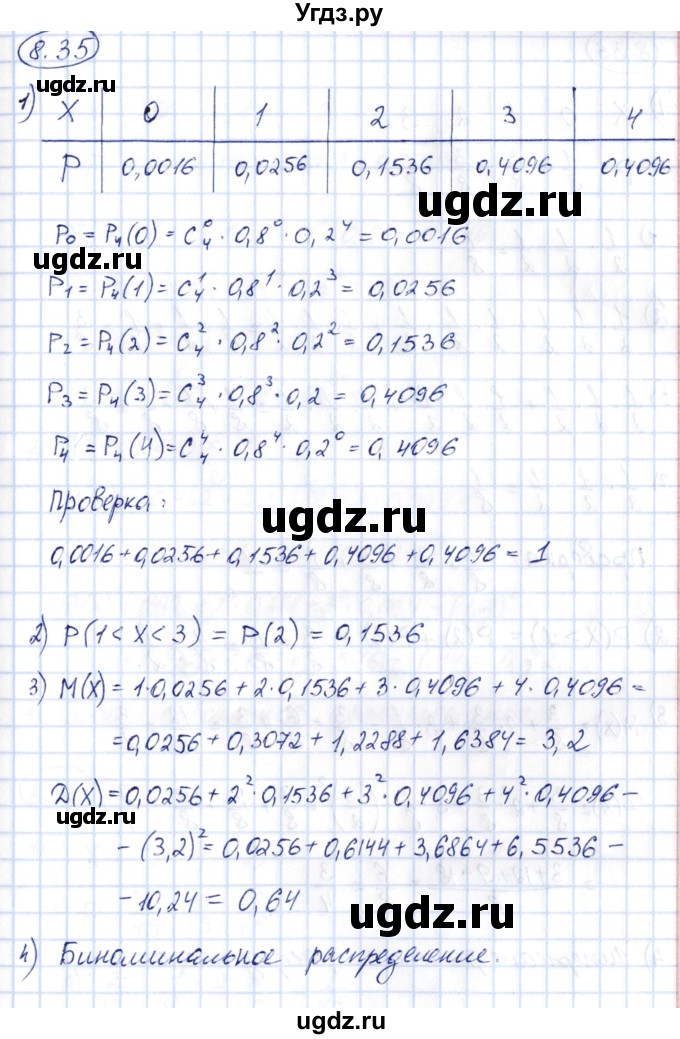 Угдз.ру
8.35
1) X 0 1 2 3 4
P 0,0016 0,0256 0,1536 0,4096 0,4096
ugdz.ru
P₀ = P₄(0) = C₄⁰ · 0,8⁰ · 0,2⁴ = 0,0016
ugdz.ru
P₁ = P₄(1) = C₄¹ · 0,8¹ · 0,2³ = 0,0256
P₂ = P₄(2) = C₄² · 0,8² · 0,2² = 0,1536
P₃ = P₄(3) = C₄³ · 0,8³ · 0,2 = 0,4096
P₄ = P₄(4) = C₄⁴ · 0,8⁴ · 0,2⁰ = 0,4096
Проверка:
ugdz.ru
0,0016 + 0,0256 + 0,1536 + 0,4096 + 0,4096 = 1
2) P(1 < X < 3) = P(2) = 0,1536
3) M(X) = 1·0,0256 + 2·0,1536 + 3·0,4096 + 4·0,4096 =
= 0,0256 + 0,3072 + 1,2288 + 1,6384 = 3,2
D(X) = 0,0256 + 2²·0,1536 + 3²·0,4096 + 4²·0,4096 -
ugdz.ru
- (3,2)² = 0,0256 + 0,6144 + 3,6864 + 6,5536 -
- 10,24 = 0,64
ugdz.ru
4) Биноминальное распределение.
ugdz.ru